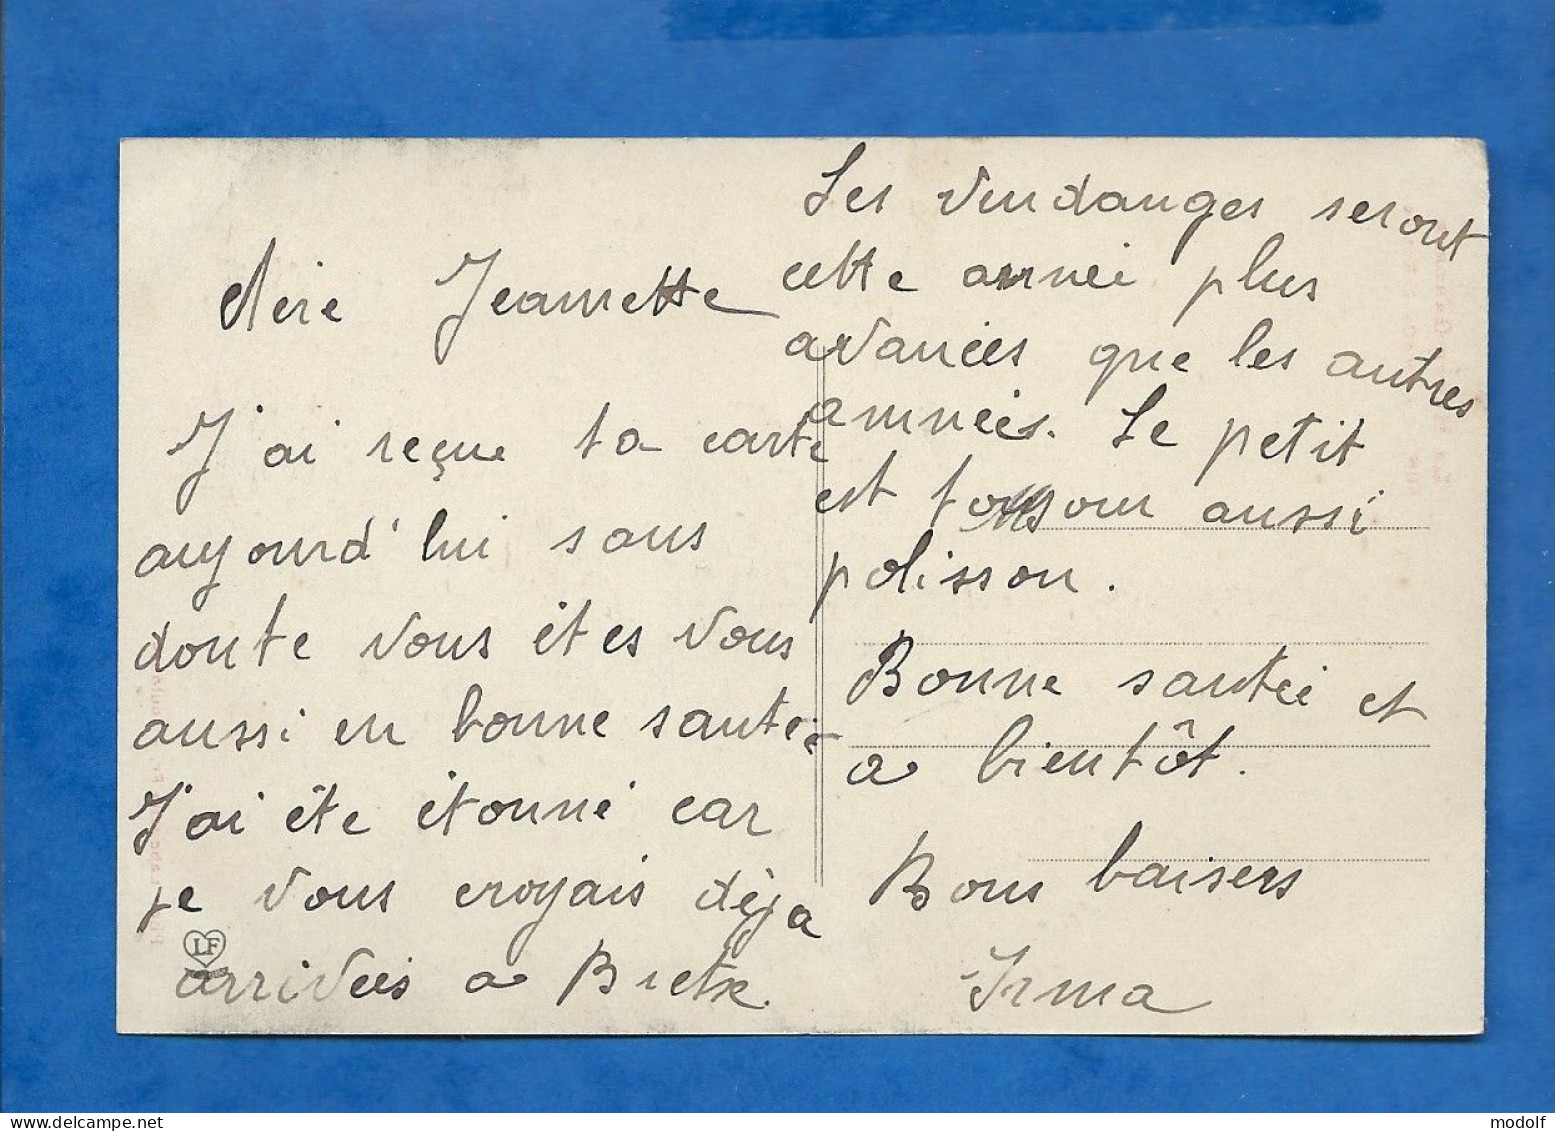 chère Jeannette
J'ai reçue ta carte
aujourd'hui sans
doute vous étes vous
aussi en bonne santée
J'ai éte étonné car
je vous croyais dèja
arrivées a
LF
Les vendanges seront
cette année plus
avancées que les autres
années. Le petit
est aussi
polisson.
Bonne santée et
a bientôt.
Bons baisers
Irma
www.delcampe.net
modolf